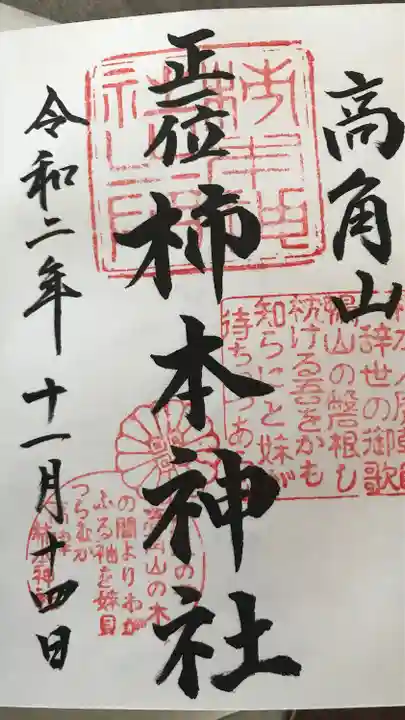 高角山
正一位 柿本神社
令和二年 十一月十四日
辞世の御歌
鴨山の磐根し
枕ける吾をかも
知らにと妹が
待ちつつあ
高角山の木
の間よりわが
ふる袖を妹見
つらむか